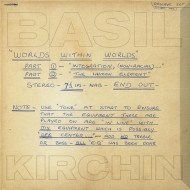 BASIL
"WORLDS WITHIN WORLDS"
PART ① - "INTEGRATION, (NON-RACIAL)"
PART ② - "THE HUMAN ELEMENT"
STEREO - 7½ IPS - NAB - END OUT -
NOTE - USE 'TONE' AT START TO ENSURE
THAT THE EQUIPMENT THESE ARE
PLAYED ON ARE 'IN LINE' WITH
MY EQUIPMENT WHICH IS POSSIBLY
- NO ADD. OF TREBLE
OR BASS - ALL EQ HAS BEEN DONE
KIRCHIN